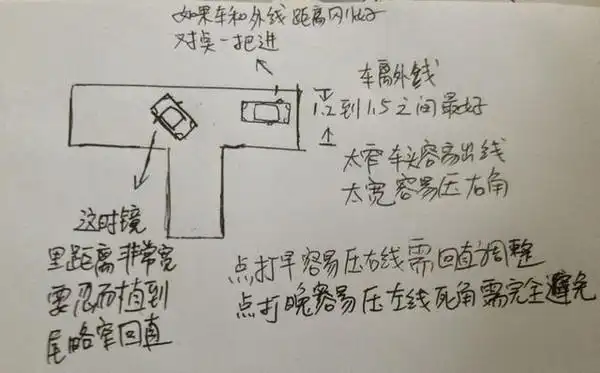 如果车和外线距离刚好
对点一把进
车离外线
1.2到1.5之间最好
太窄车头容易出线
太宽容易压右角
这时镜
里距离非常宽
要忍耐植到
尾略窄回直
点打早容易压右线需回直调整
点打晚容易压左线死角需完全避免